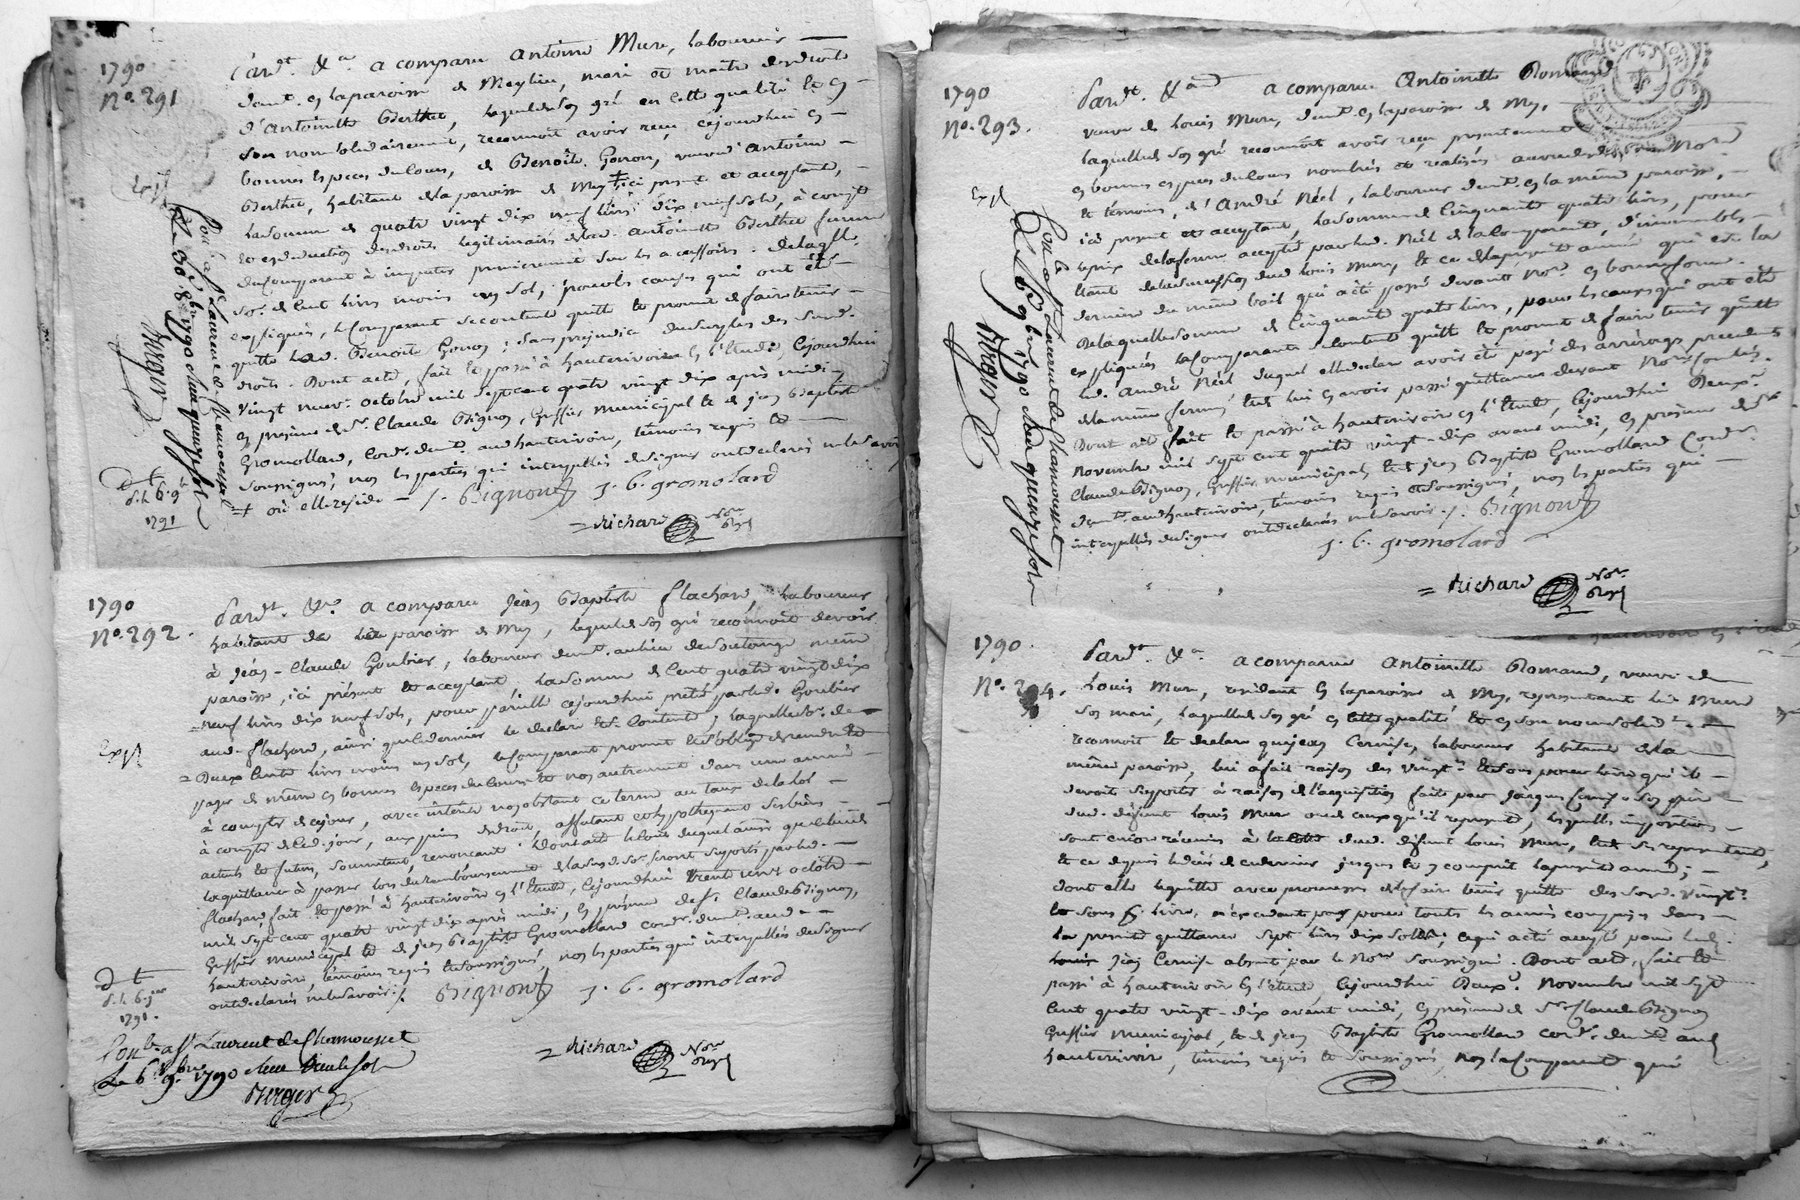 1790
No. 291
Pardt. &a. a comparu Antoine Mure, laboureur
demt. en la paroisse de Meylieu, mari et maitre des droits
d'Antoinette Berthee, lequel de son gré en cette qualité et en
son nom solidairement, reconnoit avoir reçu cejourd'hui en
bonnes especes du cours, de Benoite Gonon, veuve d'Antoine
Berthee, habitant en la paroisse de Mey ici present et acceptant,
la somme de quatre vingt dix neuf livres dix neuf sols, à compte
et en deduction des droits legitimaires de lad. Antoinette Berthee femme
du comparant à imputer premierement sur les accessoirs. de laqlle.
so. de cent livres moins un sol, pour les causes qui ont été
expliquées, le comparant se contente quitte et promet de faire tenir
quitte lad. Benoite Gonon; sans prejudice du surplus des susd.
droits. Dont acte, fait et passé à hauterivoire en l'Etude, cejourd'hui
vingt neuf octobre mil sept cent quatre vingt dix après midi
en presence de Sr. Claude Bignon, Greffier municipal et de jean Baptiste
Gromollard, cordr. demt. aud hauterivoire, témoins requis et
soussignés, non les parties qui interpellées de signer ont declaré ne le savoir
où elle reside ./. Bignon J. B. gromolard
= Richard Nore royal
d t
d. l. 6. 9bre
1791
Exp
Con. à St. Laurent de Chamousset
Le 30. 8bre 1790 Reçu quinze sols
Berger
1790
No. 292.
Pardt. &a. a comparu jean Baptiste flachard, laboureur
habitant de lad paroisse de Mey, lequel de son gré reconnoit devoir
à jean-Claude Goubier, laboureur demt. au lieu de Soulange même
paroisse, ici présent et acceptant la somme de cent quatre vingt dix
neuf livres dix neuf sols, pour pareille cejourd'hui prêtée par led. Goubier
aud. flachard, ainsi que le dernier le declare et s'en contente; laquelle so. de
= Deux cents livres moins un sol, le comparant promet et s'oblige de rendre et
payer de même en bonnes especes du cours et non autrement dans une année
à compter de ce jour, avec intérêt nonobstant ce terme au taux de la loi
à compter de ced. jour, aux peines de droit, affectant et hypothequant ses biens
actuels et futurs, soumettant, renonçant. Dont acte le cout duquel ainsi que celui de
la quittance à passer lors du remboursement de lasusd. so. seront supportés par led.
flachard, fait et passé à hauterivoire en l'Etude, cejourd'hui trente un octobre
mil sept cent quatre vingt dix après midi, en présence de Sr. Claude Bignon,
Greffier municipal et de jean Baptiste Gromollard cordr. demt. aud
hauterivoire, témoins requis et soussignés, non les parties qui interpellées de signer
ont declaré ne le savoir ./. Bignon J. B. gromolard
= Richard Nore royal
Exp
d t
d. l. 6. jer
1791.
Con. à St. Laurent de Chamousset
Le 6. 9bre 1790 Reçu
Berger
1790
No. 293.
Pardt. &a. a comparu Antoinette Romand
veuve de Louis Mure, demt. en la paroisse de Mey,
laquelle de son gré reconnoit avoir reçu presentement
en bonnes especes du cours nombrées et realisées au vu du Nore
et témoins, d'André Néel, laboureur demt. en la même paroisse,
ici present et acceptant, la somme de cinquante quatre livres, pour
le prix de la ferme acceptée par led. Néel de la comparante, d'immeubles
étant de la succession dud Louis Mure, et ce de la presente année qui est la
derniere du même bail qui a été passé devant Nore en bonne forme.
De laquelle somme de cinquante quatre livres, pour les causes qui ont été
expliquées la comparante se contente quitte et promet de faire tenir quitte
led. André Néel duquel elle declare avoir été payé des arrérages precedents
de la même ferme, et lui en avoir passé quittance devant Nore
Dont acte fait et passé à hauterivoire en l'Etude, cejourd'hui Deux.
Novembre mil sept cent quatre vingt-dix avant midi, en presence de Sr
Claude Bignon, Greffier municipal, et de jean Baptiste Gromollard Cordr.
demt. aud hauterivoire, témoins requis et soussignés, non les parties qui
interpellées de signer ont declaré ne le savoir ./. Bignon
J. B. gromolard
= Richard Nore royal
Exp
Con. à St. Laurent de Chamousset
le 6. 9bre 1790 Reçu quinze sols
Berger
1790.
No. 294.
Pardt. &a. a comparu Antoinette Romand, veuve de
Louis Mure, residant en la paroisse de Mey, representant led Mure
son mari, laquelle de son gré en cette qualité et en son nom solidt.
reconnoit et declare que jean Cernise, laboureur habitant de la
même paroisse, lui a fait raison des vingt. et sous pour livre qu'il
devoit supporter à raison de l'acquisition faite par jacques Cernise son père
dud. défunt Louis Mure ou de ceux qu'il represente, lesquelles impositions
sont encore réunies à la cotte dud. défunt Louis Mure,
et ce depuis le décès de ce dernier jusques et y compris la presente année;
dont elle le quitte avec promesse de le faire tenir quitte desd. vingt.
et sous p. livre, n'excedant pas pour toutes les années comprises dans
la presente quittance sept livres dix sols; ce qui a été accepté pour led.
jean Cernise absent, par le Nore soussigné. Dont acte, fait et
passé à hauterivoire en l'étude, cejourd'hui Deux. Novembre mil sept
cent quatre vingt-dix avant midi, en présence de Sr. Claude Bignon
Greffier municipal, et de jean Baptiste Gromollard cordr. demt. aud
hauterivoire, témoins requis et soussignés, non la Comparante qui